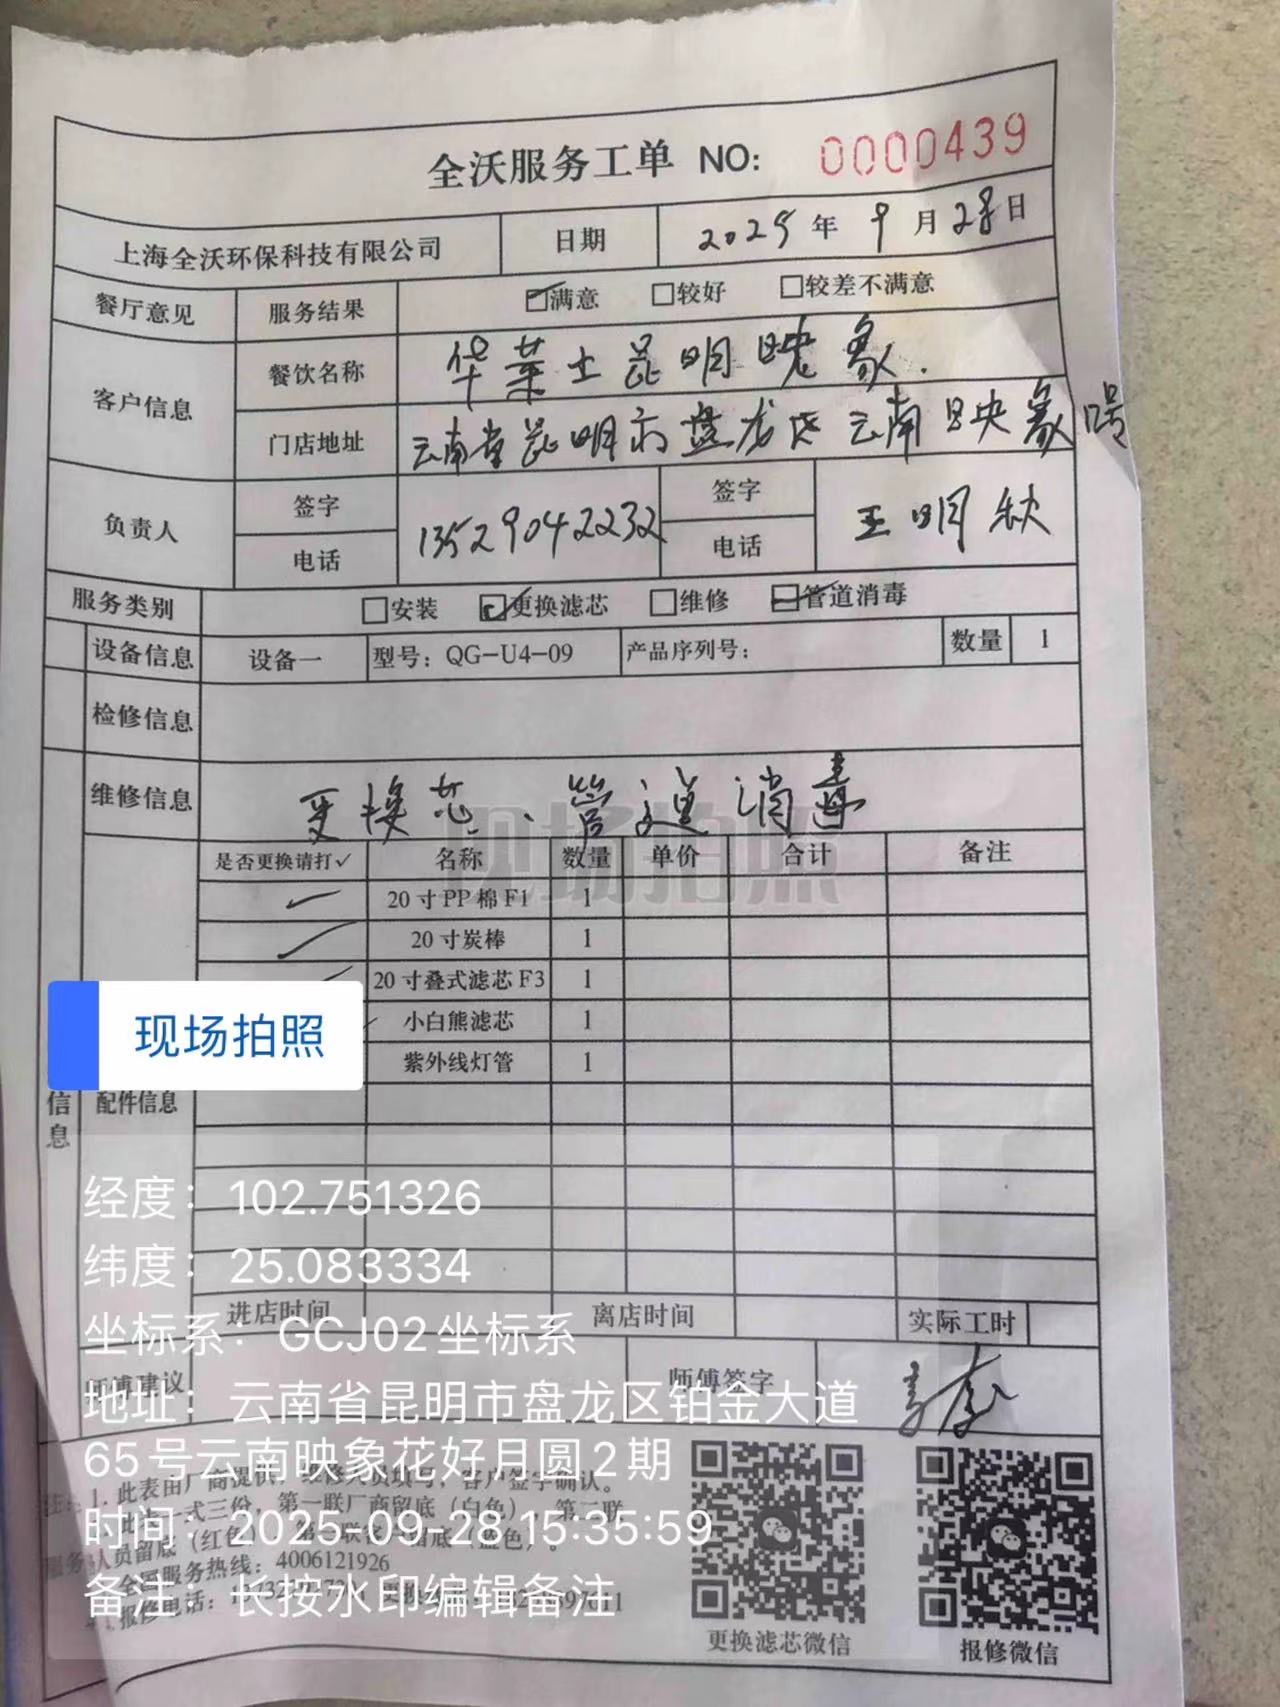 全沃服务工单 NO: 0000439
上海全沃环保科技有限公司 日期 2025年 9月 28日
餐厅意见 服务结果 满意 较好 较差不满意
客户信息 餐饮名称 华莱士昆明映象.
门店地址 云南省昆明市盘龙区云南映象
负责人 签字 13529042232 签字 王明秋
电话 电话
服务类别 安装 更换滤芯 维修 管道消毒
设备信息 设备一 型号：QG-U4-09 产品序列号： 数量 1
检修信息
维修信息 更换芯、管道消毒
现场拍照
是否更换请打✓ 名称 数量 单价 合计 备注
✓ 20寸PP棉F1 1
✓ 20寸炭棒 1
✓ 20寸叠式滤芯F3 1
小白熊滤芯 1
紫外线灯管 1
现场拍照
信息 配件信息
经度：102.751326
纬度：25.083334
进店时间 离店时间 实际工时
坐标系：GCJ02坐标系
师傅建议 师傅签字
地址：云南省昆明市盘龙区铂金大道
65号云南映象花好月圆2期
注：1. 此表由厂商提供，维修人员填写，客户签字确认。
一式三份，第一联厂商留底（白色），第二联
时间：2025-09-28 15:35:59
服务人员留底（红色 留底（蓝色）。
全国服务热线：4006121926
备注：长按水印编辑备注
报修电话：
更换滤芯微信 报修微信